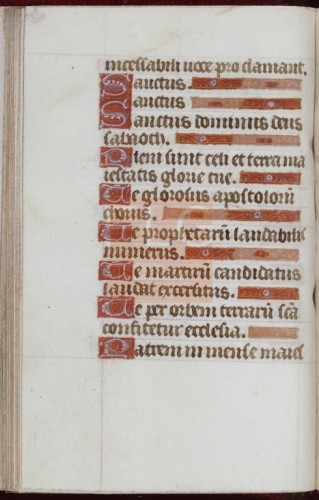 incessabili uoce proclamant.
Sanctus.
Sanctus
Sanctus dominus deus
sabaoth.
Pleni sunt celi et terra ma
iestatis glorie tue.
Te gloriosus apostolorū
chorus.
Te prophetarū laudabilis
numerus.
Te martirū candidatus
laudat excersitus.
Te per orbem terrarū scā
confitetur ecclesia.
Patrem inmense maies